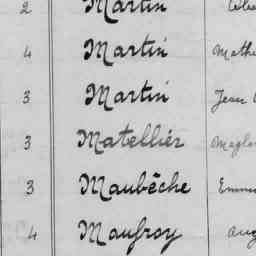 2 Martin
4 Martin Math
3 Martin Jean
3 Matellier Magl
3 Maubêche Emm
4 Maufroy Aug